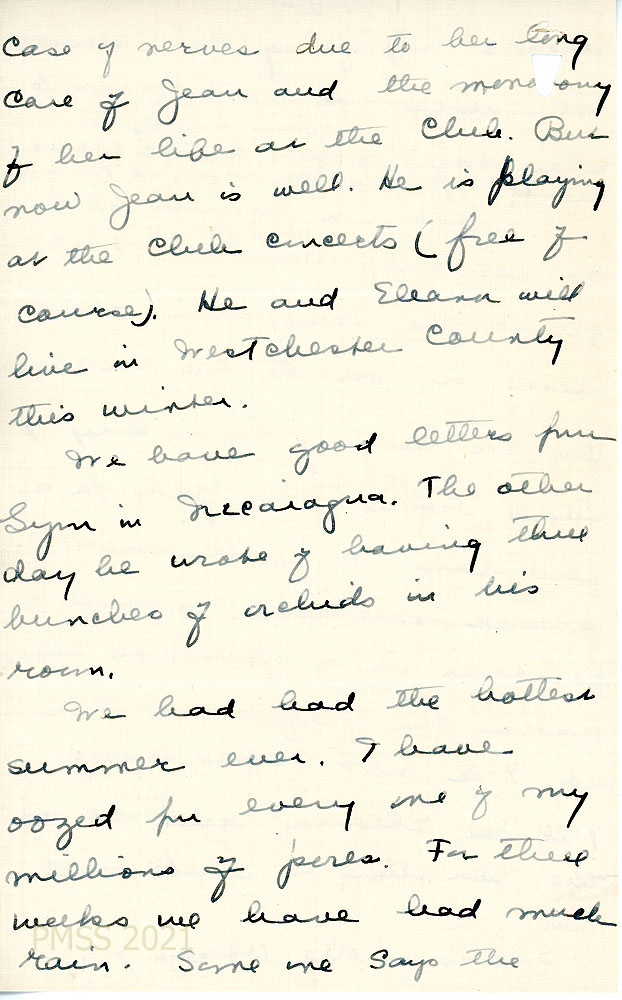 case of nerves due to her long
care of Jean and the monotony
of her life at the Club. But
now Jean is well. He is playing
at the Club concerts (free of
course). He and Eleanr will
live in Westchester County
this winter.
We have good letters from
Sym in Nicaragua. The other
day he wrote of having three
bunches of orchids in his
room.
We had had the hottest
summer ever. I have
oozed fm every one of my
millions of pores. For three
weeks we have had much
rain. Some one says the
PMSS 2021